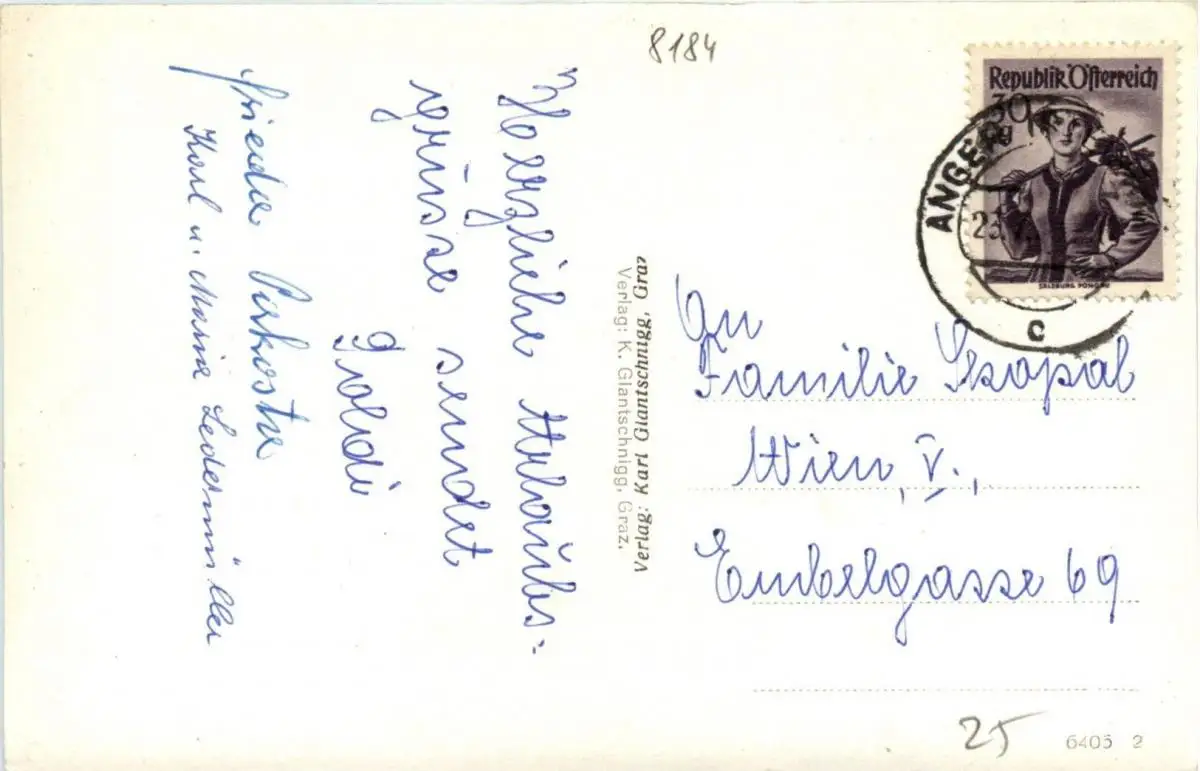 8184
Herzliche Urlaubs-
grüsse sendet
Goldi
Frieda
Karl u. Maria Ledermüller
Verlag: Karl Glantschnigg, Graz
Verlag: K. Glantschnigg, Graz.
Republik Österreich
30 g
SALZBURG PONGAU
ANGER
c
An
Familie Skopal
Wien, V.,
Embelgasse 69
25
6405 2